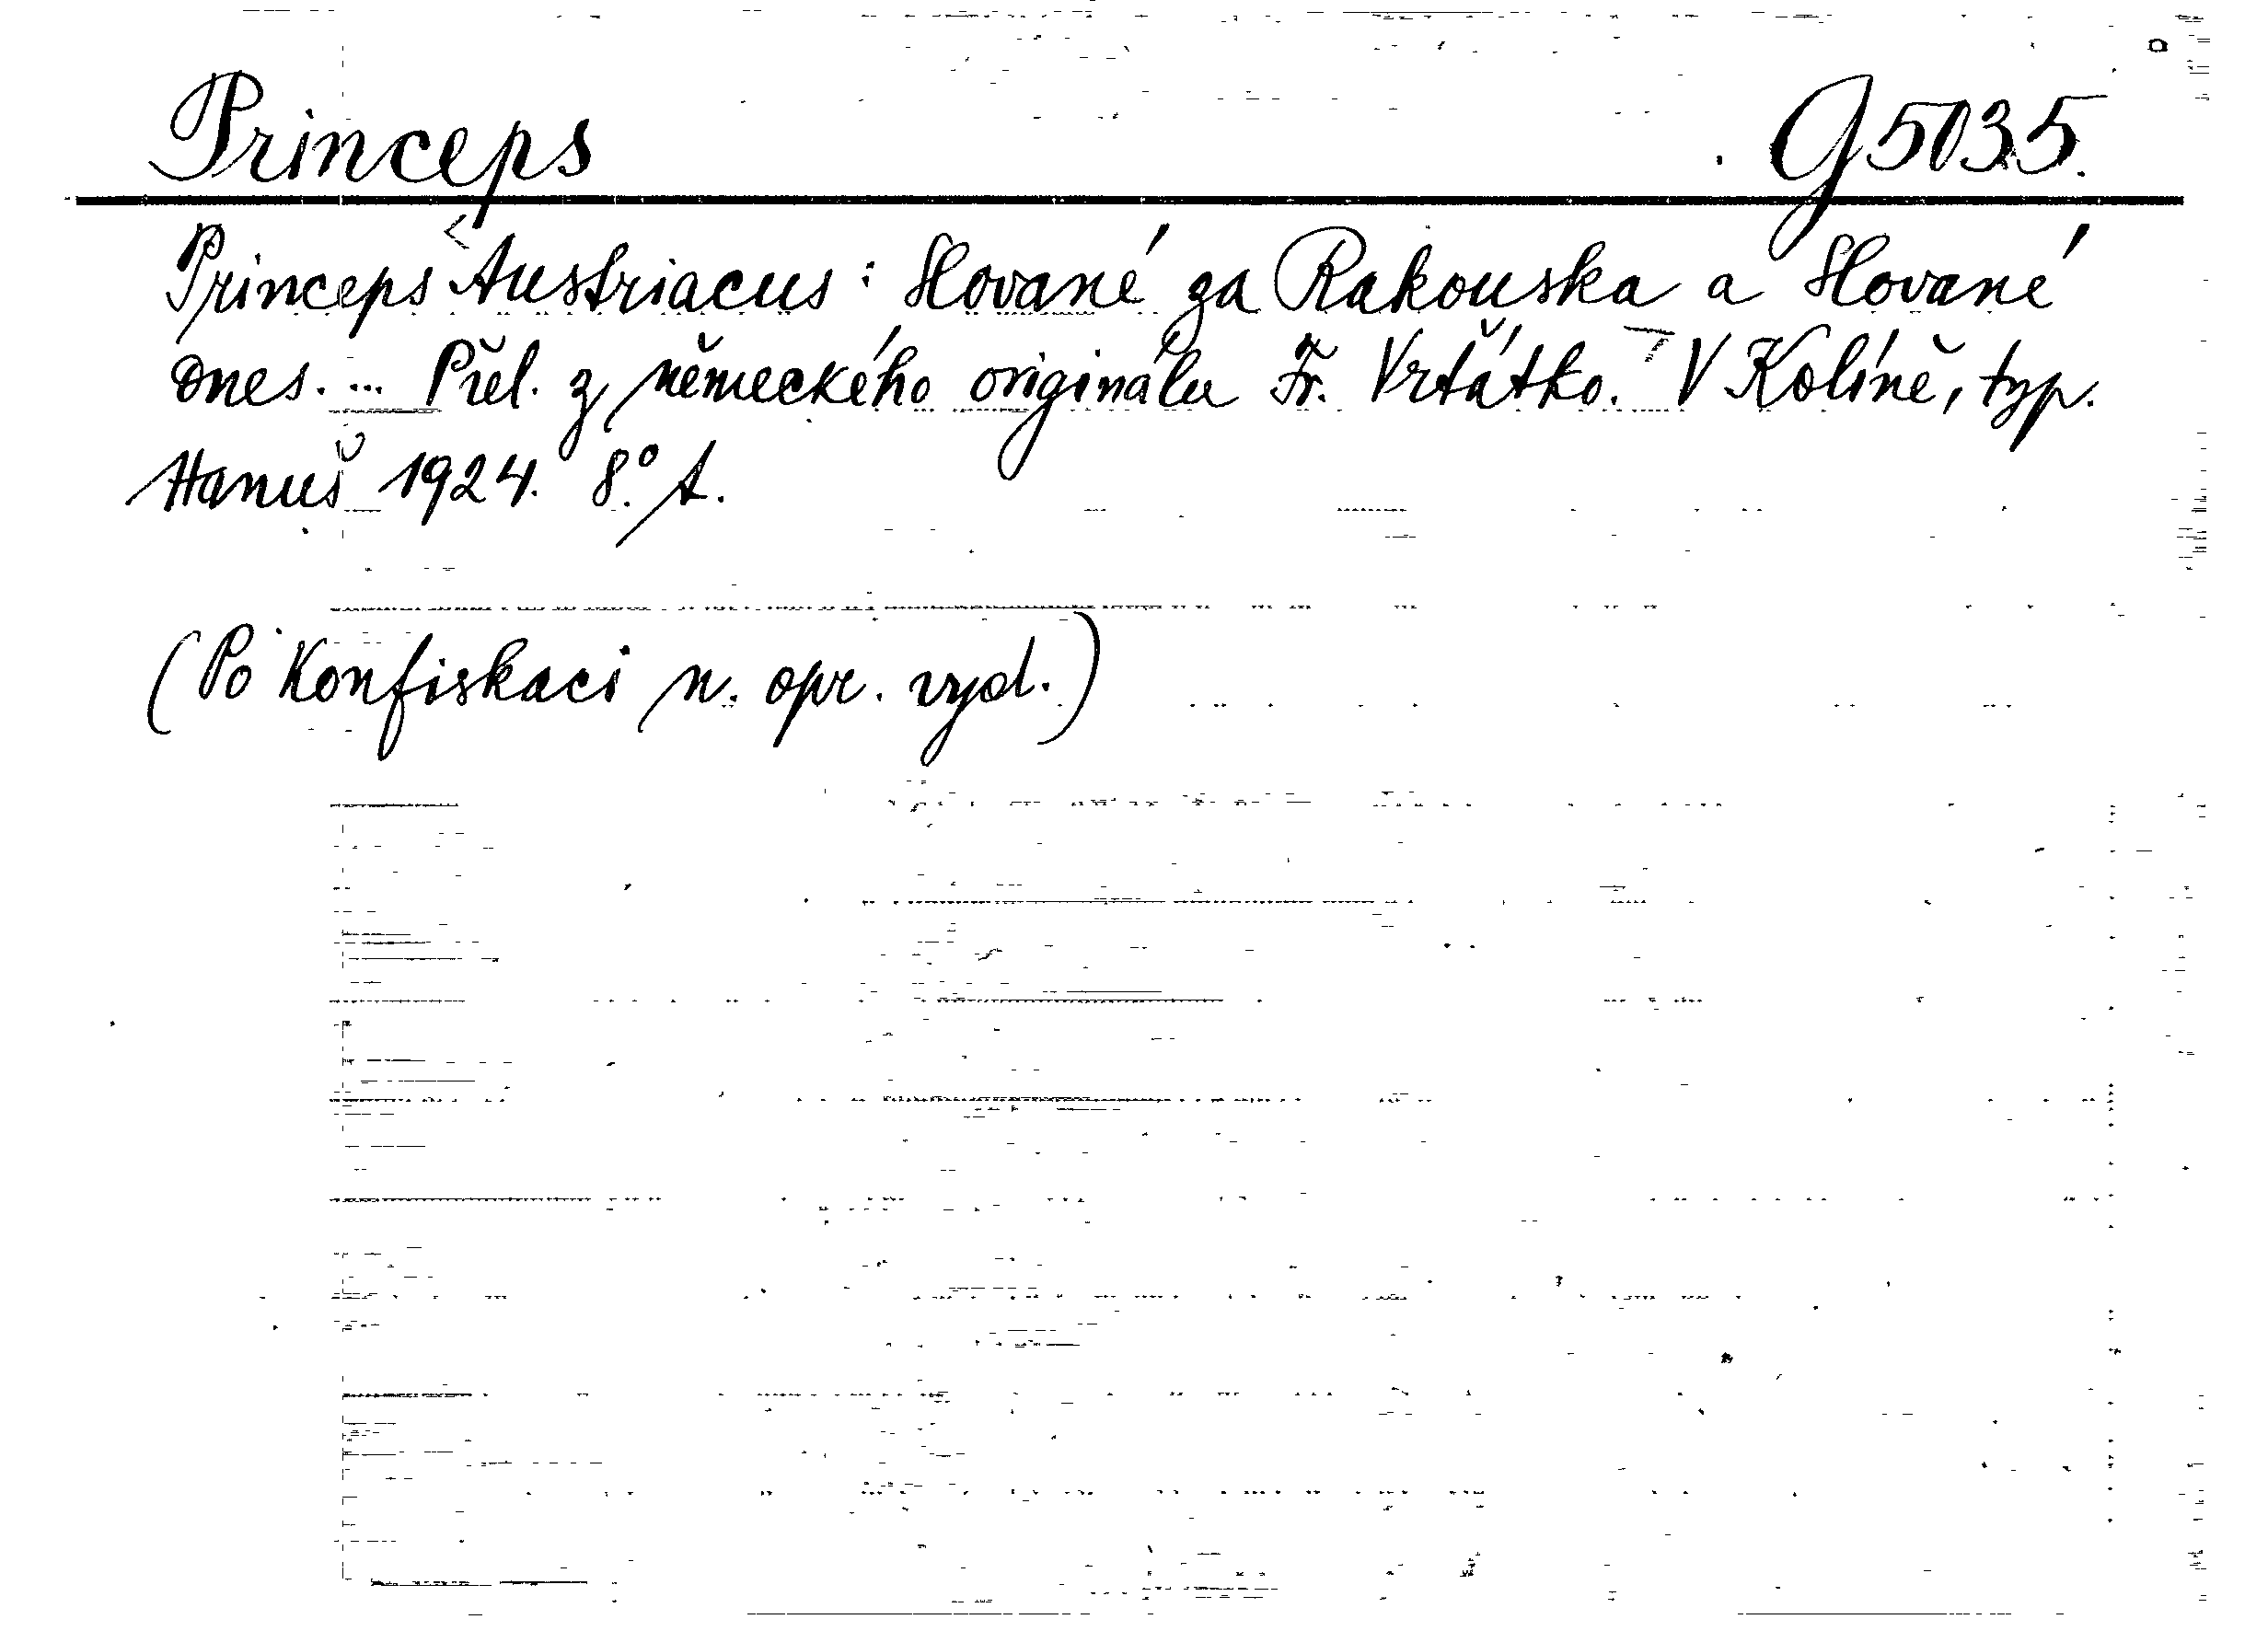 Princeps G 5035.
Princeps Austriacus: Slované za Rakouska a Slované
dnes. ... Přel. z německého originálu Fr. Vrťátko. V Kolíně, typ.
Hanuš 1924. 8.° A.
(Po konfiskaci n. opr. vyd.)